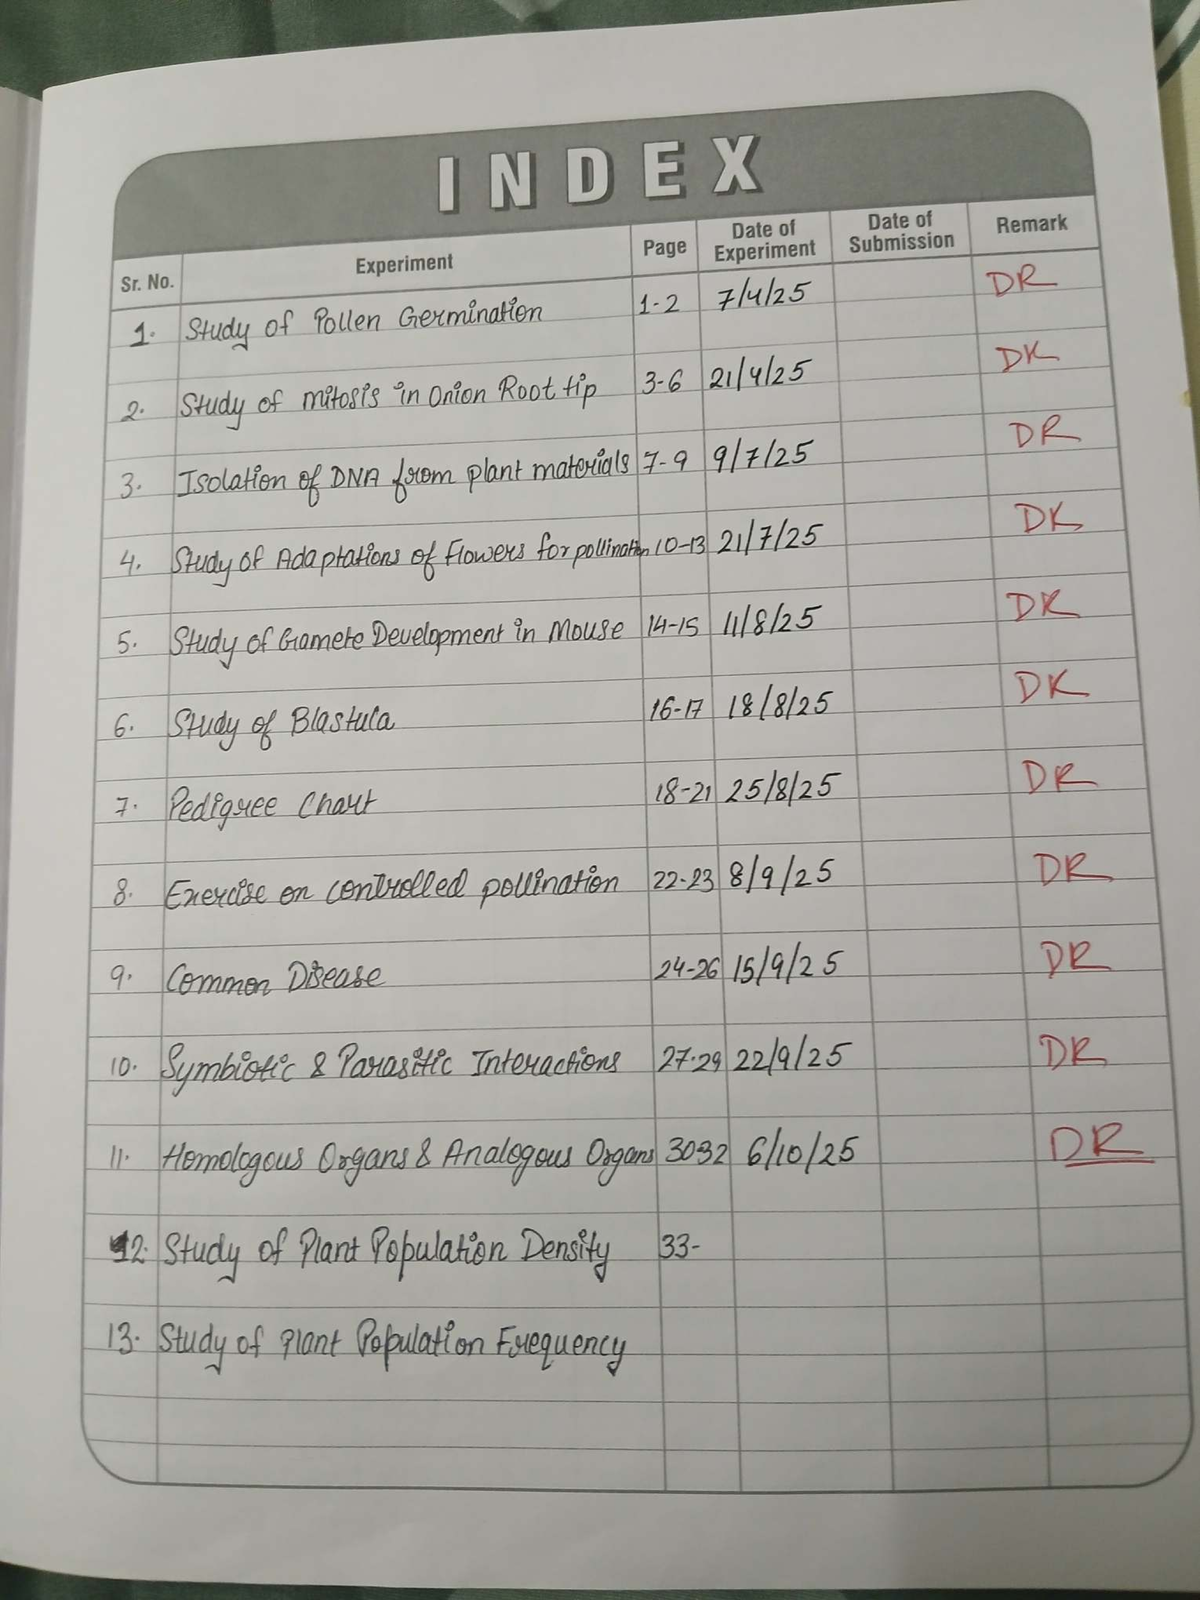 INDEX
Sr. No. Experiment Page Date of Experiment Date of Submission Remark
1. Study of Pollen Germination 1-2 7/4/25 DR
2. Study of mitosis in Onion Root tip 3-6 21/4/25 DK
3. Isolation of DNA from plant materials 7-9 9/7/25 DR
4. Study of Adaptations of Flowers for pollination 10-13 21/7/25 DK
5. Study of Gamete Development in Mouse 14-15 11/8/25 DK
6. Study of Blastula 16-17 18/8/25 DK
7. Pedigree Chart 18-21 25/8/25 DR
8. Exercise on controlled pollination 22-23 8/9/25 DR
9. Common Disease 24-26 15/9/25 DR
10. Symbiotic & Parasitic Interactions 27-29 22/9/25 DR
11. Homologous Organs & Analogous Organs 3032 6/10/25 DR
12. Study of Plant Population Density 33-
13. Study of Plant Population Frequency